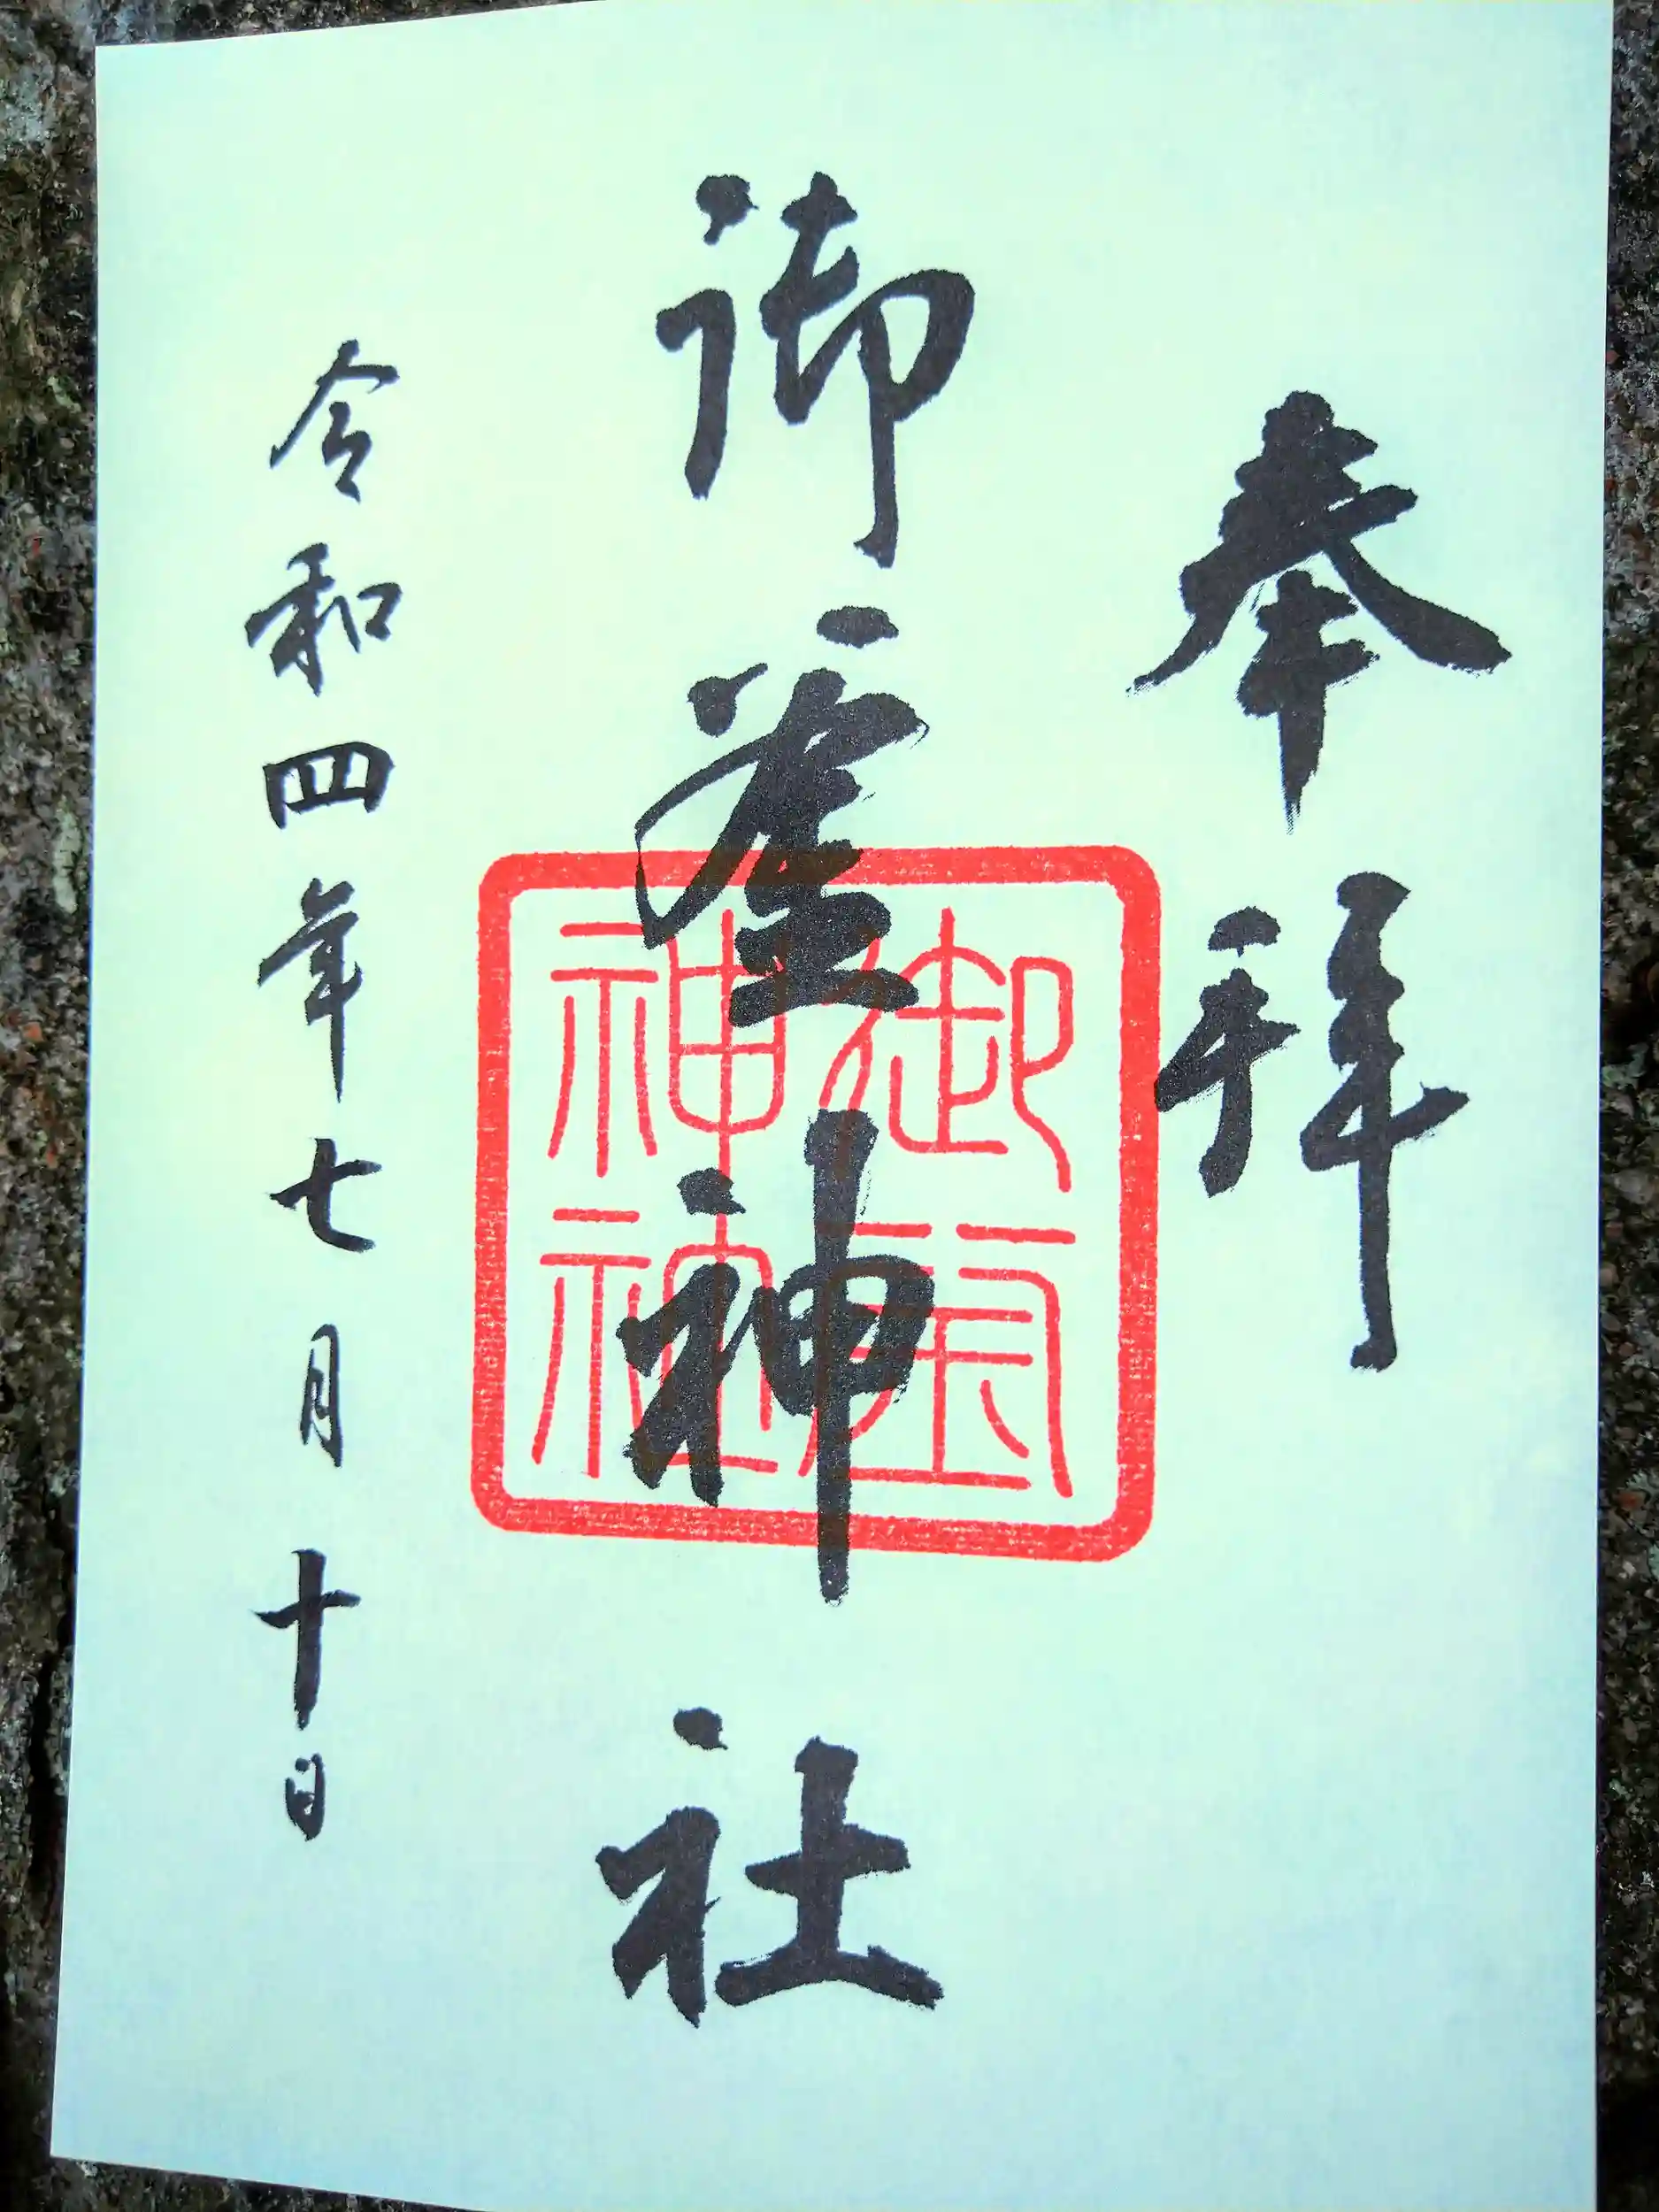 奉拝
御釜神社
令和四年七月十日
御
神社